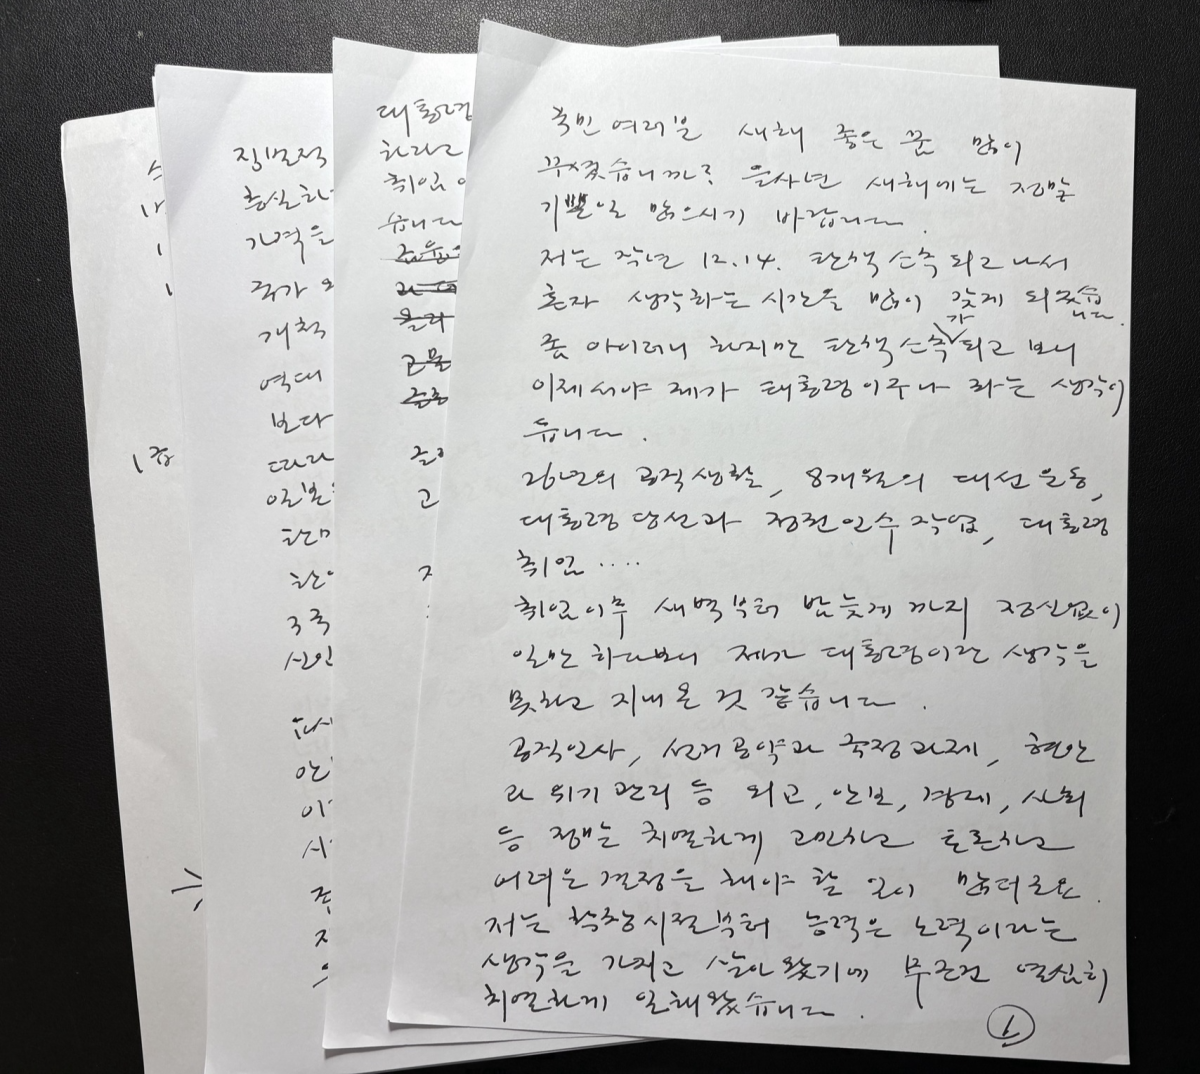 국민 여러분 새해 좋은 꿈 많이
꾸셨습니까? 을사년 새해에는 정말
기쁠일 많으시기 바랍니다.
저는 작년 12.14. 탄핵 소추되고 나서
혼자 생각하는 시간을 많이 갖게 되었습니다.
좀 아이러니 하지만 탄핵 소추가 되고 보니
이제서야 제가 대통령이구나 라는 생각이
듭니다.
26년의 공직생활, 8개월의 대선 운동,
대통령 당선과 정권 인수 작업, 대통령
취임 ....
취임이후 새벽부터 밤늦게 까지 정신없이
일만 하다보니 제가 대통령이란 생각을
못하고 지내온 것 같습니다.
공직인사, 선거 공약과 국정과제, 현안
과 위기 관리 등 외교, 안보, 경제, 사회
등 정말 치열하게 고민하고 토론하고
어려운 결정을 해야 할 일이 많더군요.
저는 학창시절부터 능력은 노력이라는
생각을 가지고 살아왔기에 무조건 열심히
치열하게 일해왔습니다.
1
대통령
하라고
취임
습니다
고
집무적
충실하
가격을
국가
개척
역대
보다
따라
일본
한미
3국